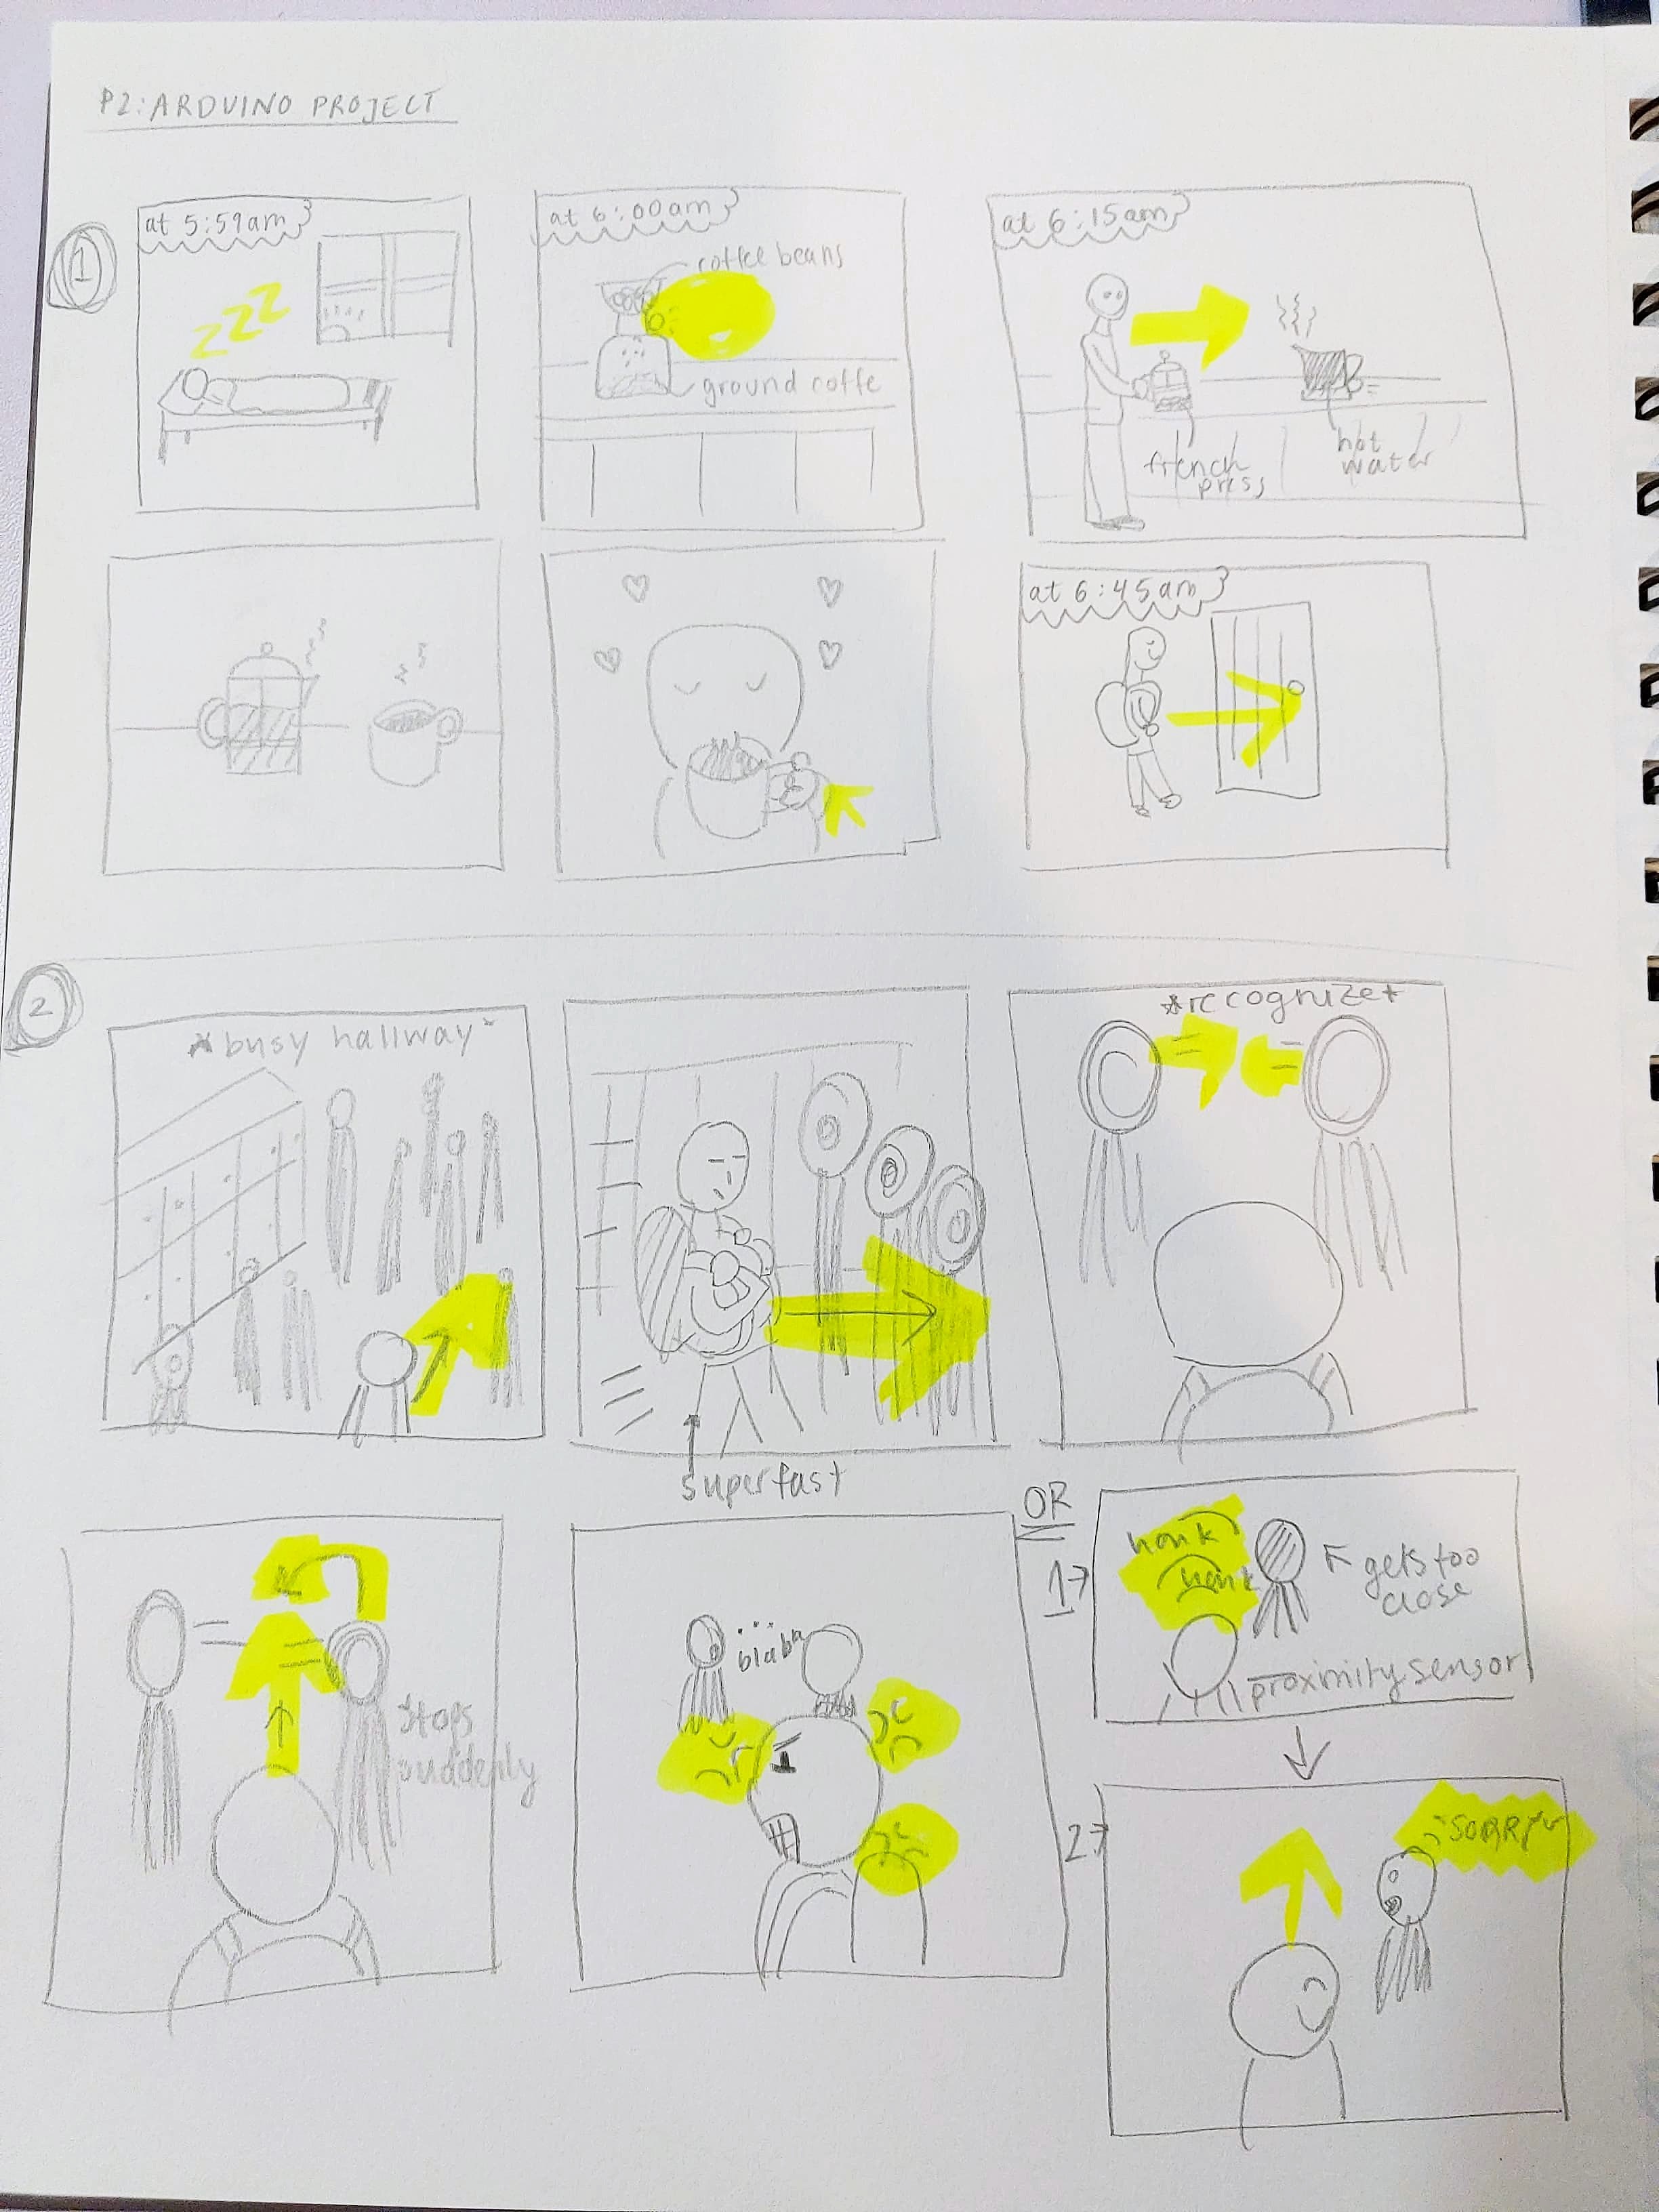 P2: ARDUINO PROJECT
1
at 5:59am
zzz
at 6:00am
coffee beans
ground coffe
at 6:15am
french
press
hot
water
at 6:45am
2
*busy hallway*
superfast
*recognize*
stops
suddenly
blabla
OR
1→
honk
honk
gets too
close
proximity sensor
2→
SORRY